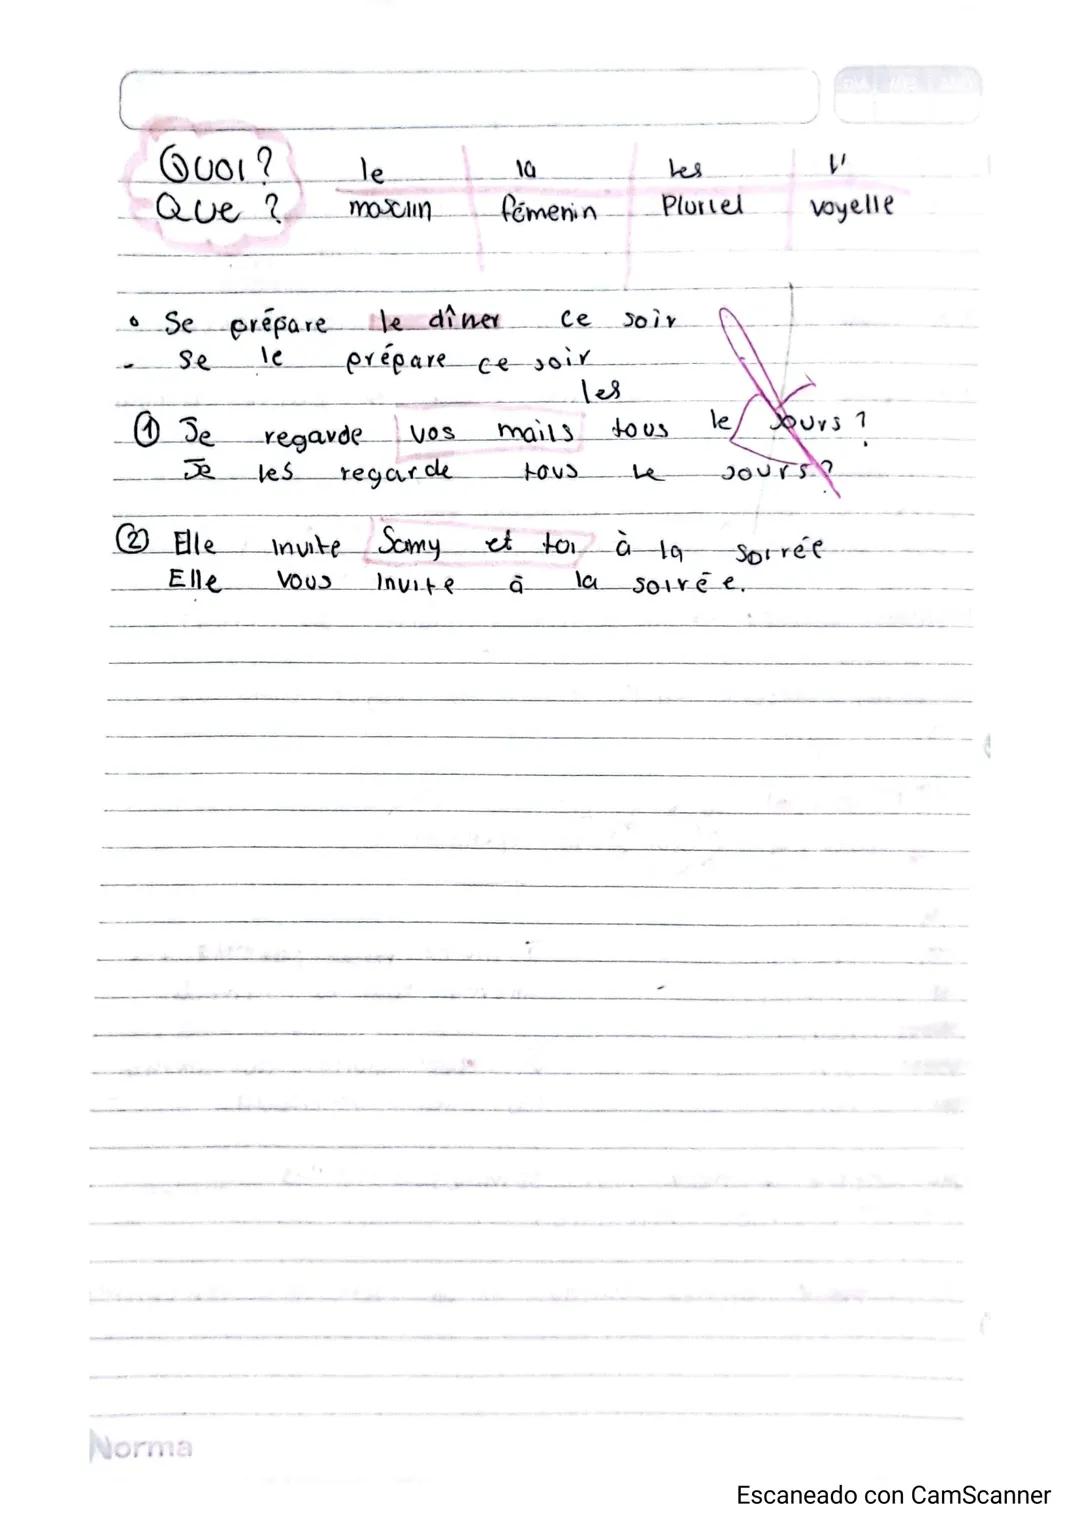 Quoi? le la Les l'
Que? masclin fémenin Pluriel voyelle
• Se prépare le dîner ce soir
- Se le prépare ce soir
les
① Je regarde vos mails tous le Jours?
Je les regarde tous le Jours?
② Elle invite Samy et toi à la soirée
Elle vous invite à la soirée.
Norma
Escaneado con CamScanner